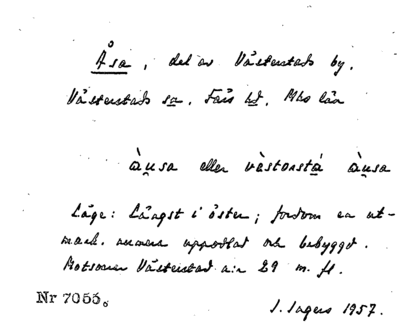 Åsa, del av Västerstads by.
Västerstads sn. Färs hd. Mhs län
àu̯sa eller vàstɒnstá àu̯sa
Läge: Längst i öster; fordom en ut-
mark. numera uppodlad och bebyggd.
Motsvarar Västerstad n:r 29 m. fl.
Nr 7055.
J. Ingers 1957.